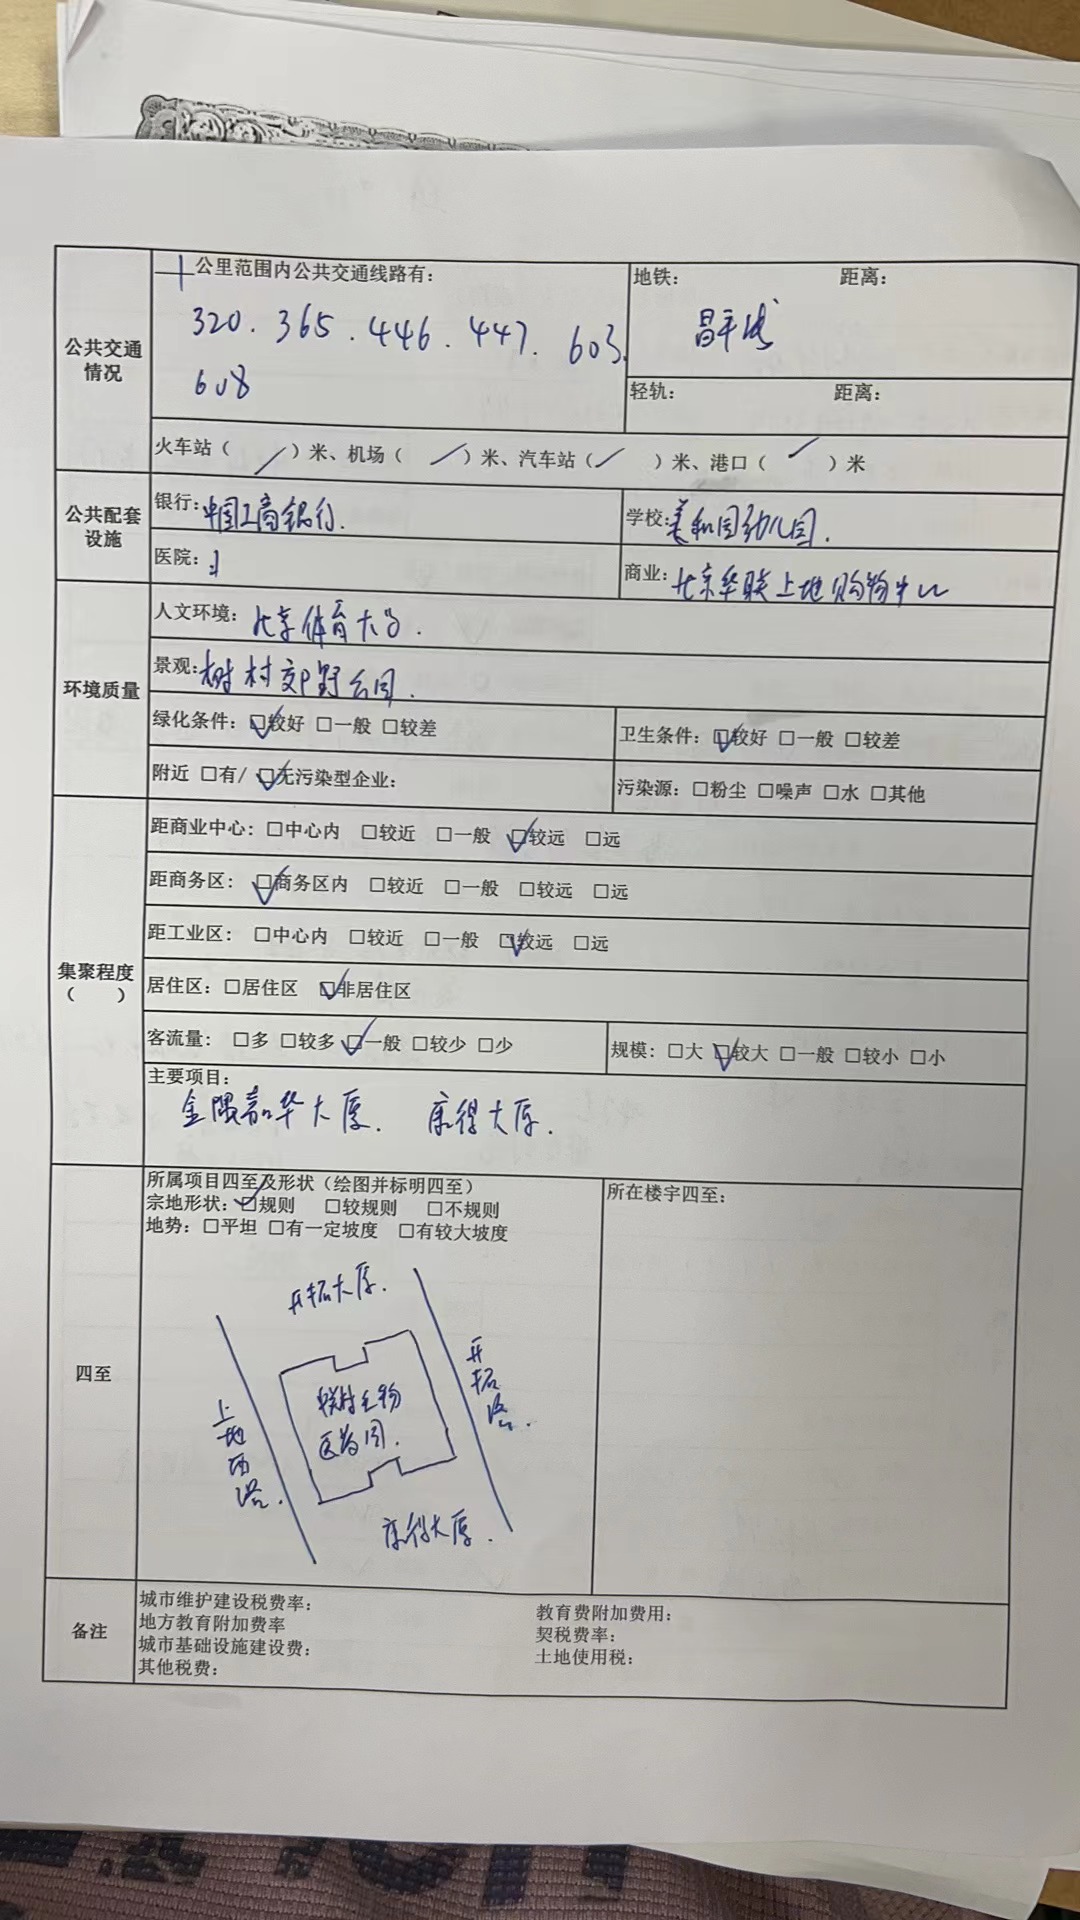 一公里范围内公共交通线路有:
320.365.446.447.603.
608
地铁: 距离:
昌平线
轻轨: 距离:
公共交通
情况
火车站( / )米、机场( / )米、汽车站( / )米、港口( / )米
公共配套
设施
银行:中国工商银行.
学校:美和园幼儿园.
医院:
商业:北京华联上地购物中心
环境质量
人文环境:北京体育大学.
景观:树村郊野公园.
绿化条件:☑较好 □一般 □较差
卫生条件:☑较好 □一般 □较差
附近 □有/ ☑无污染型企业:
污染源:□粉尘 □噪声 □水 □其他
集聚程度
( )
距商业中心:□中心内 □较近 □一般 ☑较远 □远
距商务区:☑商务区内 □较近 □一般 □较远 □远
距工业区:□中心内 □较近 □一般 ☑较远 □远
居住区:□居住区 ☑非居住区
客流量:□多 □较多 ☑一般 □较少 □少
规模:□大 ☑较大 □一般 □较小 □小
主要项目:
金隅嘉华大厦. 康得大厦.
四至
所属项目四至及形状(绘图并标明四至)
宗地形状:☑规则 □较规则 □不规则
地势:□平坦 □有一定坡度 □有较大坡度
所在楼宇四至:
开拓大厦.
上地西路.
生物
医药园.
开拓路.
康得大厦.
备注
城市维护建设税费率:
地方教育附加费率
城市基础设施建设费:
其他税费:
教育费附加费用:
契税费率:
土地使用税: